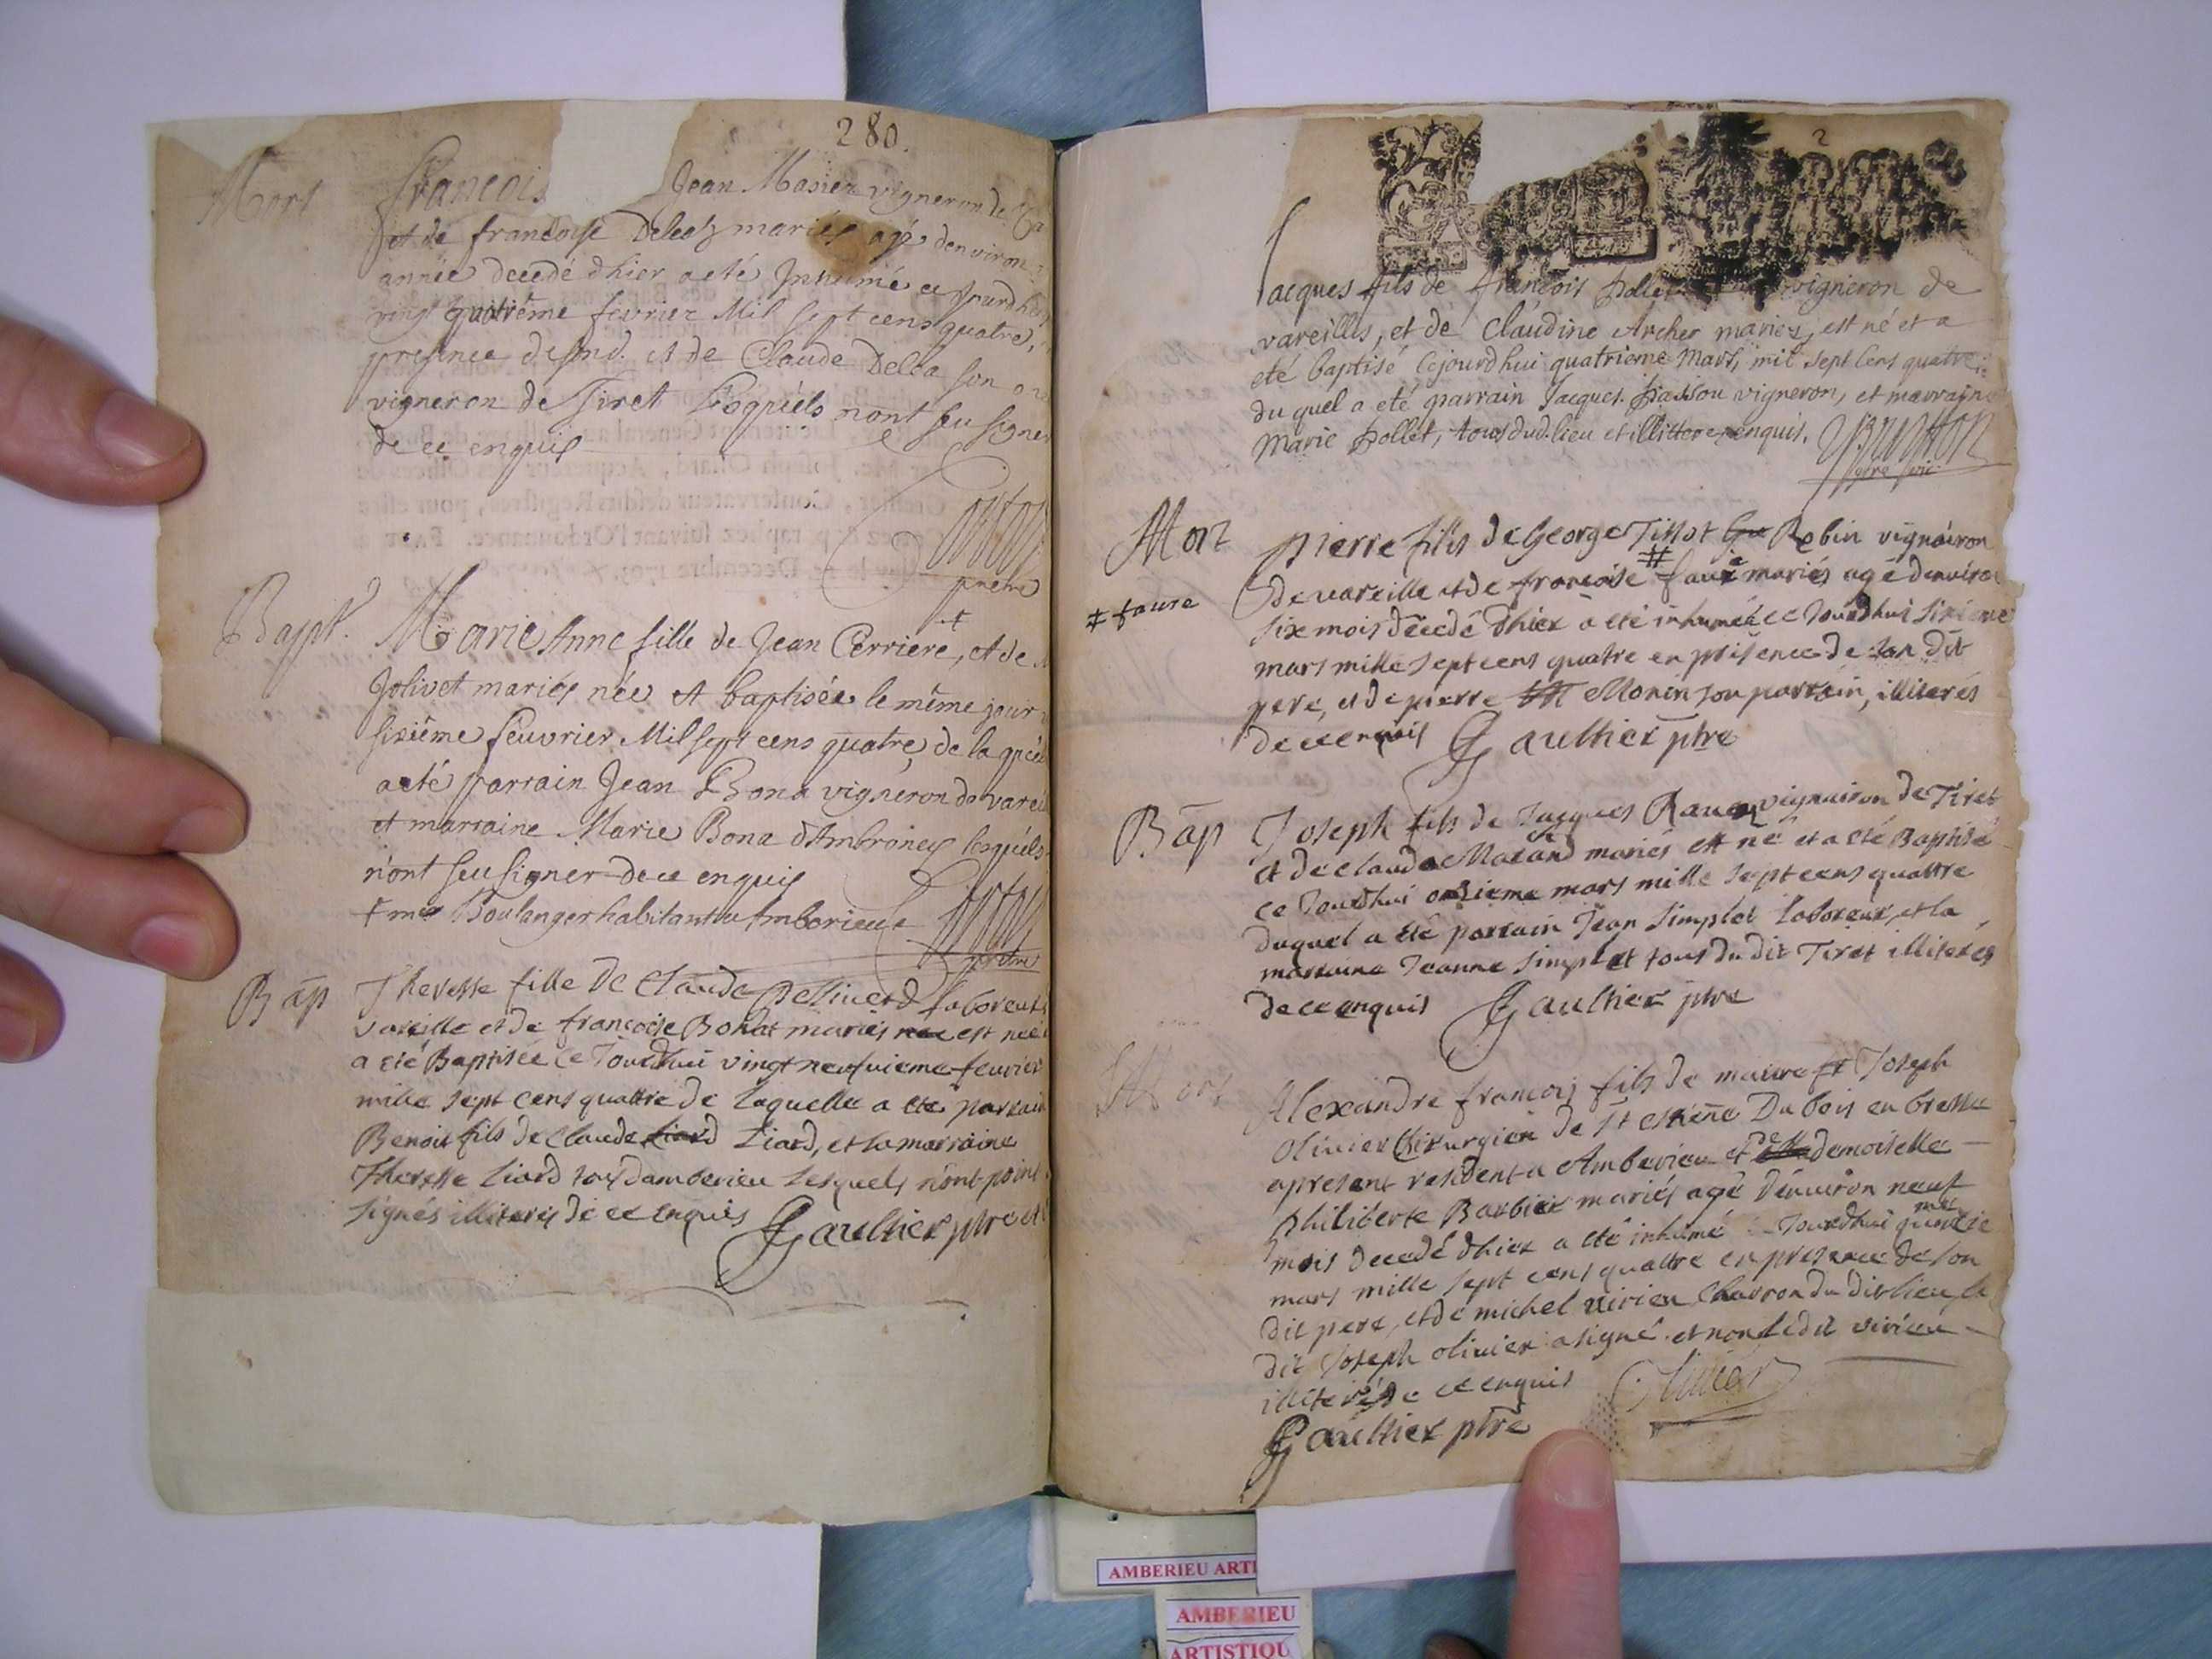 280.
Mort
francois Jean Masier vigneron de
et de francoise mariés agé denviron
année decedé dhier a eté Inhumé ce jourdhuy
vingt quatriême fevrier Mil sept cens quatre,
presence de et de Claude Delea son
vigneron de Tiret Lesquels nont seu signer
de ce enquis
prêtre
Bapt.
Marie Anne fille de Jean Cerriere, + et de
Jolivet mariés née et baptisée le même jour
sixiême feuvrier Mil sept cens quatre, de laquel
a eté parrain Jean Bona vigneron de varei
et marraine Marie Bona d'Ambroney lesquels
n'ont seu signer de ce enquis
+ me Boulanger habitant a Amberieux
prêtre
Bap
Theresse fille De Claude Laboreur
vareille et de francoise Bonat mariés est née
a eté Baptisée ce Jourdhui vingt neufuieme feurier
mille sept cens quattre de laquelle a eté parrain
Benoit fils de Claude Liard Liard, et la marraine
Theresse Liard tous damberieu lesquels n'ont point
signés illiterés de ce enquis Gaulthier ptre
2
Jacques fils de francois Pollet vigneron de
vareilles, et de Claudine Archer mariez, est né et a
eté baptisé cejourdhui quatrieme Mars, mil sept cens quatre
du quel a eté parrain Jacques Passou vigneron, et marraine
Marie Pollet, tous dud. lieu et illitterez enquis.
Mort
pierre fils de George Tissot Robin vignairon
de vareille et de francoise # mariés agé denviron
# faure
six mois decedé dhier a eté inhumé ce Jourdhui sixieme
mars mille sept cens quatre en presence de son dit
pere, et de pierre Monin son parrain, illiterés
de ce enquis Gaulthier ptre
Bap
Joseph fils de Jacques vignairon de Tiret
et de claudeMarand mariés est né et a eté Baptisé
ce Jourdhui onzieme mars mille sept cens quattre
duquel a eté parrain Jean Simplet Laboreur, et la
marraine Jeanne Simplet tous du dit Tiret illiterés
de ce enquis Gaulthier ptre
Mort
Alexandre francois fils de maitre Joseph
Olinier Chirurgien de St estienne Du bois en bresse
apresent resident a Amberieu et de demoiselle
Philiberte Barbier mariés agé denuiron neuf
mois decedé dhier a eté inhumé Jourdhui
mars mille sept cens quattre en presence de son
dit pere, et de michel virieu Charron du dit lieu, le
dit Joseph olinier a signé et non ledit virieu
illiteré de ce enquis
Gaulthier ptre
AMBERIEU ARTI
AMBERIEU
ARTISTIQU